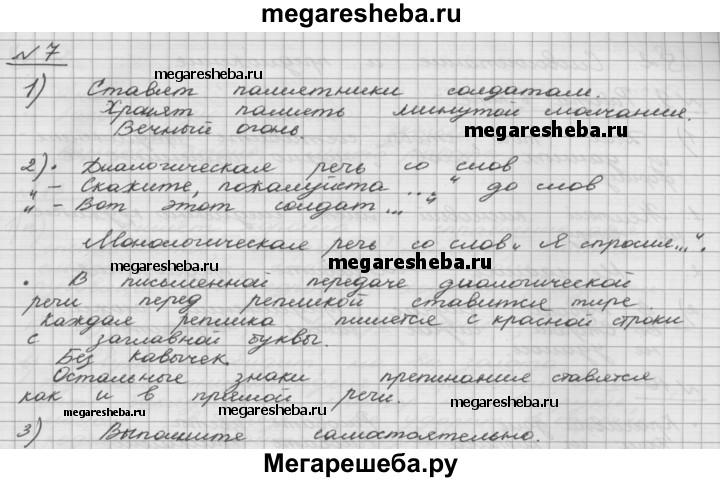 megaresheba.ru
№ 7
megaresheba.ru
1) Ставят памятники солдатам.
Хранят память минутой молчания.
Вечный огонь.
megaresheba.ru
2) • Диалогическая речь со слов
„ – Скажите, пожалуйста ... “ до слов
„ – Вот этот солдат... “
Монологическая речь со слов „ Я спросил...“.
megaresheba.ru
megaresheba.ru
• В письменной передаче диалогической
речи перед репликой ставится тире.
Каждая реплика пишется с красной строки
с заглавной буквы.
Без кавычек.
Остальные знаки препинания ставятся
как и в прямой речи.
megaresheba.ru
megaresheba.ru
megaresheba.ru
3) Выполните самостоятельно.
Мегарешеба.ру